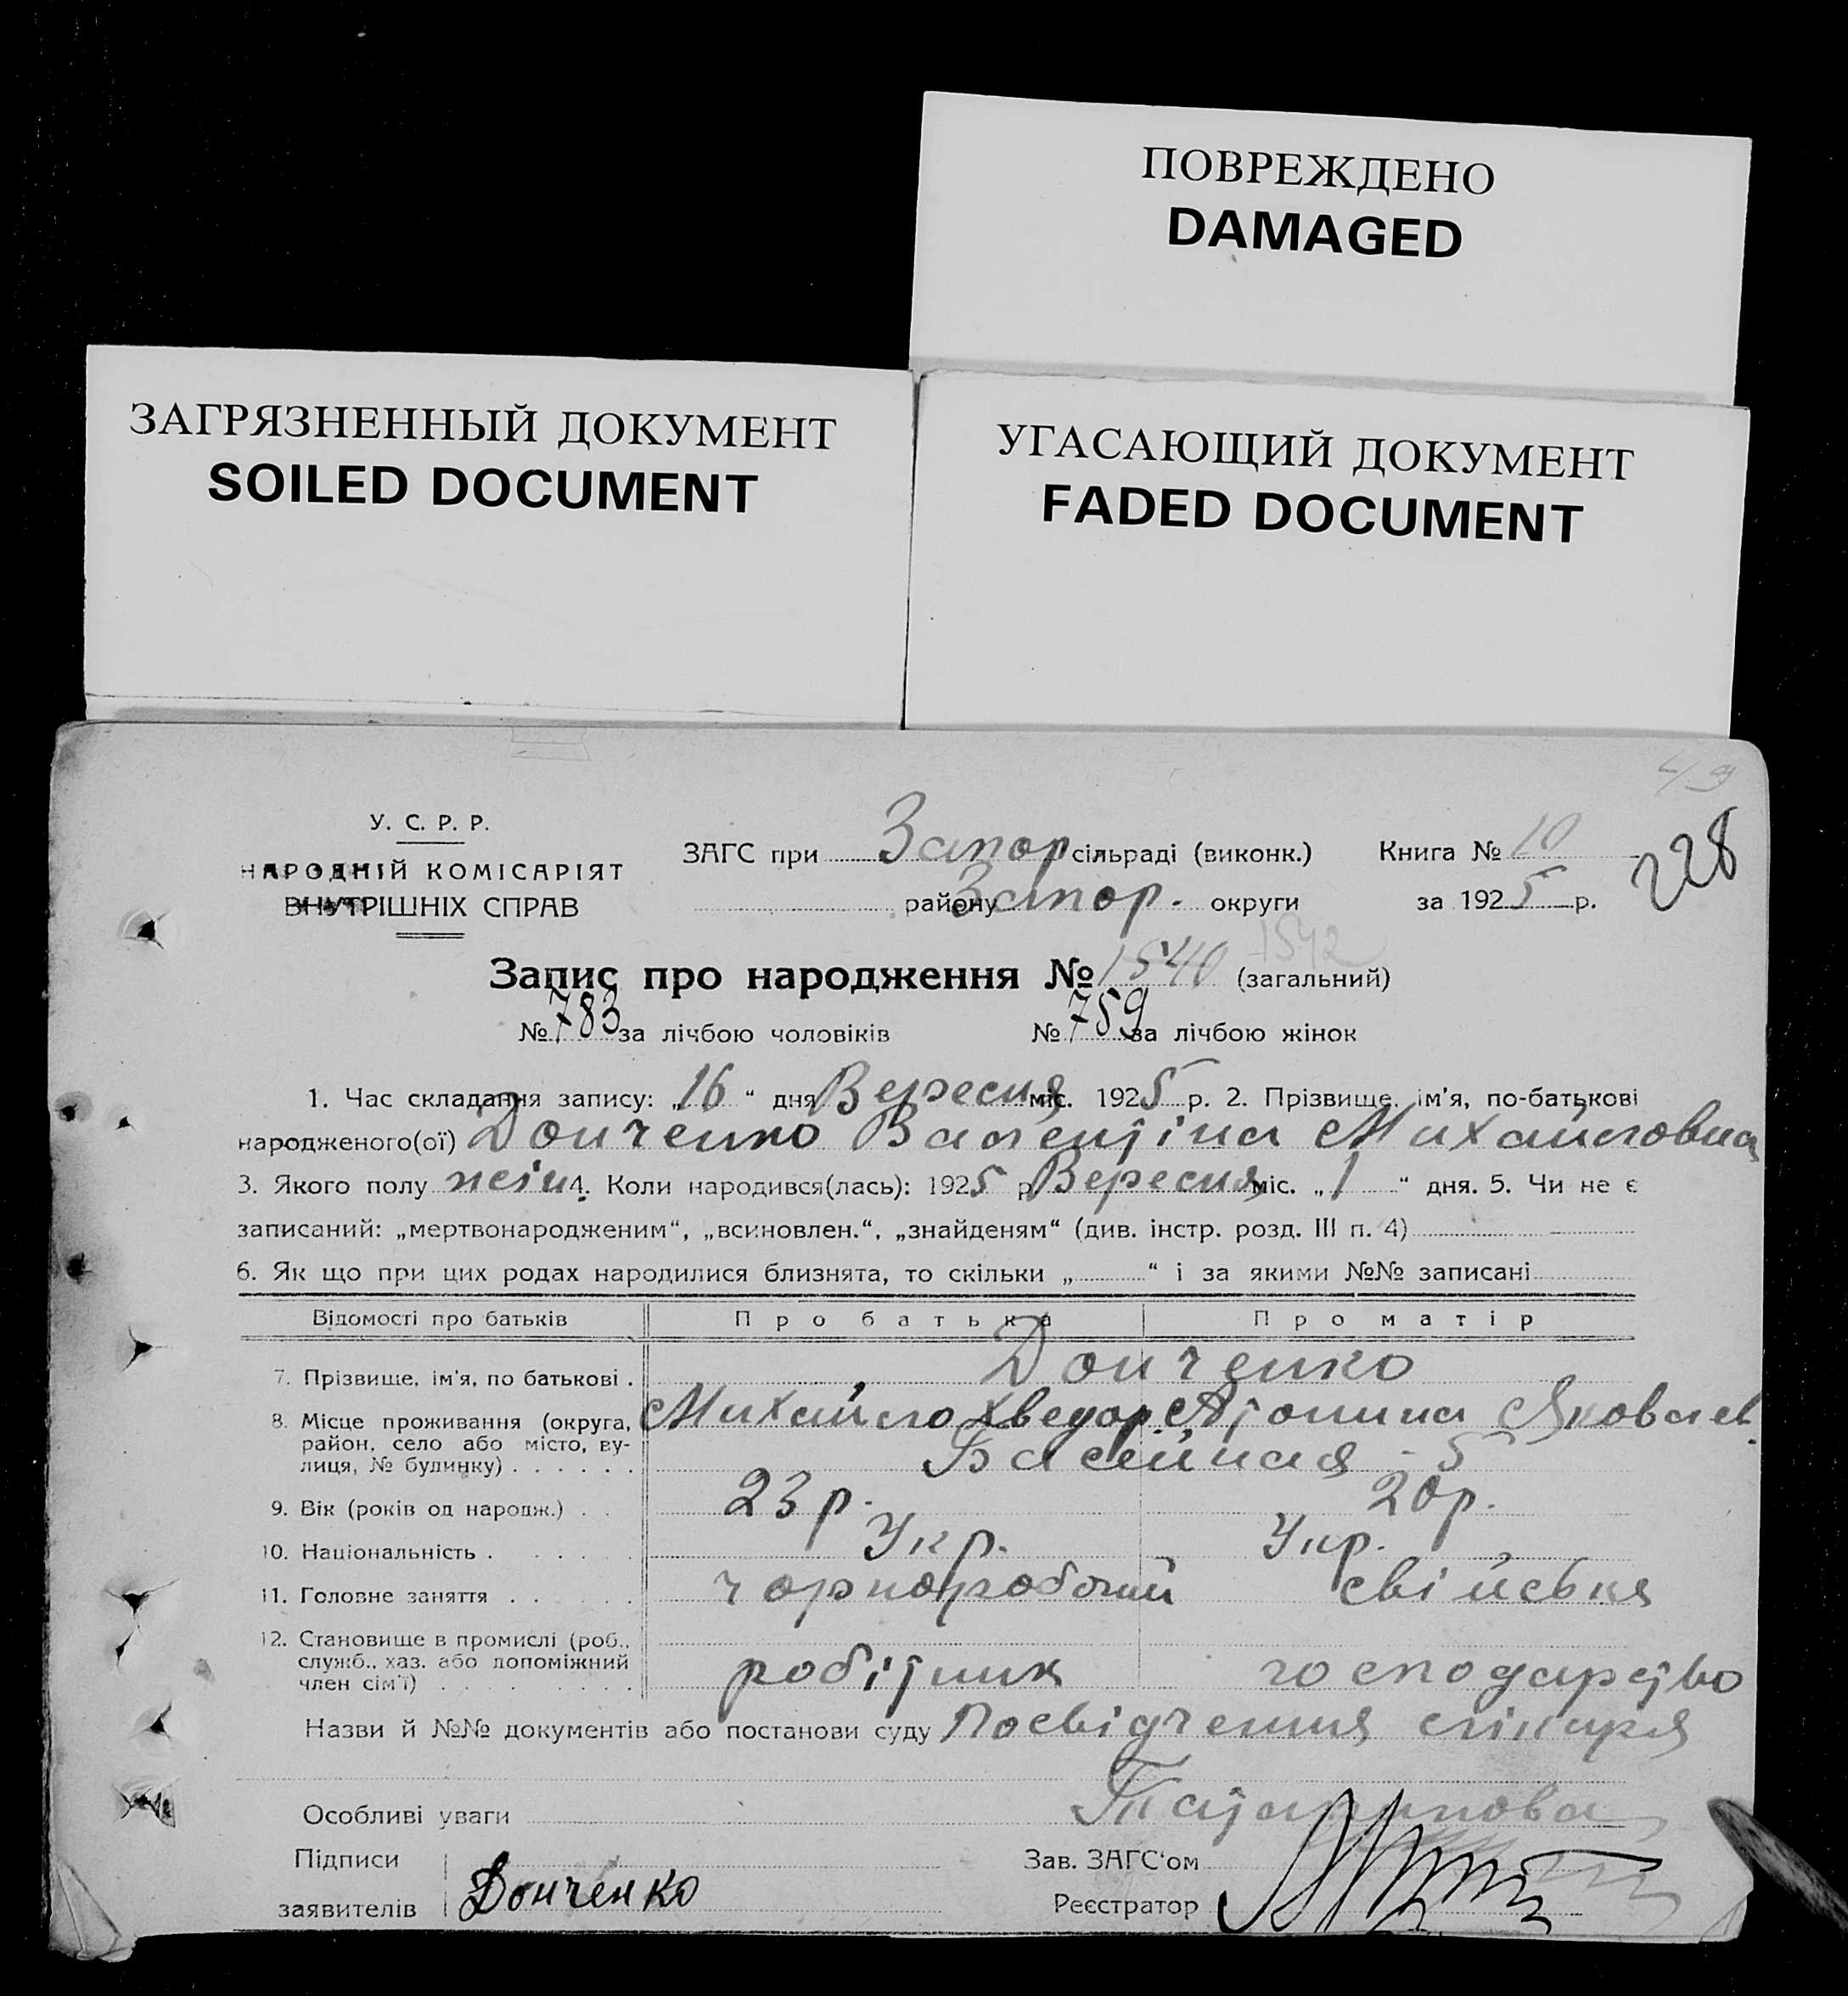 ПОВРЕЖДЕНО
DAMAGED
ЗАГРЯЗНЕННЫЙ ДОКУМЕНТ
SOILED DOCUMENT
УГАСАЮЩИЙ ДОКУМЕНТ
FADED DOCUMENT
У. С. Р. Р.
НАРОДНІЙ КОМІСАРІЯТ
ВНУТРІШНІХ СПРАВ
ЗАГС при Запор сільраді (виконк.) Книга № 10
228
району Запор. округи за 1925 р.
Запис про народження № 1540 1542 (загальний)
№ 783 за лічбою чоловіків № 759 за лічбою жінок
1. Час складання запису: „16“ дня Вересня міс. 1925 р. 2. Прізвище, ім'я, по-батькові
народженого(ої) Донченко Валентіна Михайловна
3. Якого полу жін 4. Коли народився(лась): 1925 р Вересня міс. „1“ дня. 5. Чи не є
записаний: „мертвонародженим“, „всиновлен.“, „знайденям“ (див. інстр. розд. III п. 4)
6. Як що при цих родах народилися близнята, то скільки „ “ і за якими №№ записані
Відомості про батьків Про батька Про матір
7. Прізвище, ім'я, по батькові . Донченко
8. Місце проживання (округа, Михайло Хведор Антонина Яковлев.
район, село або місто, ву-
лиця, № будинку) . . . . . . Басейная - 5
9. Вік (років од народж.) . . 23 р. 20 р.
10. Національність . . . . . Укр. Укр.
11. Головне заняття . . . . . чорноробочий свійське
12. Становище в промислі (роб.,
служб., хаз. або допоміжний
член сім'ї) . . . . . . . робітник господарство
Назви й №№ документів або постанови суду Посвідчення лікаря
Особливі уваги
Підписи Зав. ЗАГС'ом
заявителів Донченко Реєстратор